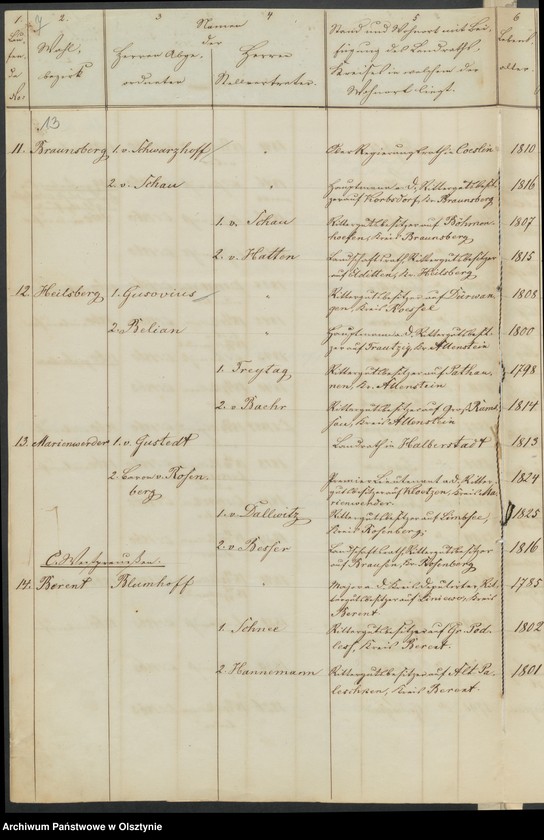 1. 2. 3. 4. 5. 6.
Namen
der
Wahl-
bezirk
Herren Abge-
ordneten
Herren
Stellvertreter.
Stand und Wohnort mit Bei-
fügung des Landraths-
Kreises in welchem der
Wohnort liegt.
Lebens-
alter
13
11. Braunsberg 1. v. Schwarzhoff " Ober Regierungsrath in Coeslin 1810
2. v. Schau " Hauptmann a. D., Rittergutsbesit-
zer auf Korbsdorf, Kr. Braunsberg 1816
1. v. Schau Rittergutsbesitzer auf Böhmen-
hoefen, Kreis Braunsberg 1807
2. v. Hatten Landschaftsrath, Rittergutsbesitzer
auf Elditten, Kr. Heilsberg 1815
12. Heilsberg 1. Gusovius " Rittergutsbesitzer auf Dürwan-
gen, Kreis Roessel 1808
2. Belian " Hauptmann a. D., Rittergutsbesit-
zer auf Trautzig, Kr. Allenstein 1800
1. Freytag Rittergutsbesitzer auf Pathau-
nen, Kr. Allenstein 1798
2. v. Bachr Rittergutsbesitzer auf Groß Rams-
sau, Kreis Allenstein 1814
13. Marienwerder 1. v. Gustedt Landrath in Halberstadt 1813
2. Baron v. Rosen-
berg Premier Lieutenant a. D., Ritter-
gutsbesitzer auf Kloetzen, Kreis Ma-
rienwerder 1824
1. v. Dallwitz Rittergutsbesitzer auf Limbsee,
Kreis Rosenberg, 1825
2. v. Besser Landschaftsrath, Rittergutsbesitzer
auf Brausen, Kr. Rosenberg 1816
C. Westpreußen.
14. Berent Blumhoff " Major a. D., Kreis-Deputirter, Rit-
tergutsbesitzer auf Liniewo, Kreis
Berent 1785
1. Schnee Rittergutsbesitzer auf Gr. Pod-
less, Kreis Berent. 1802
2. Hannemann Rittergutsbesitzer auf Alt Pa-
leschken, Kreis Berent. 1801
Archiwum Państwowe w Olsztynie